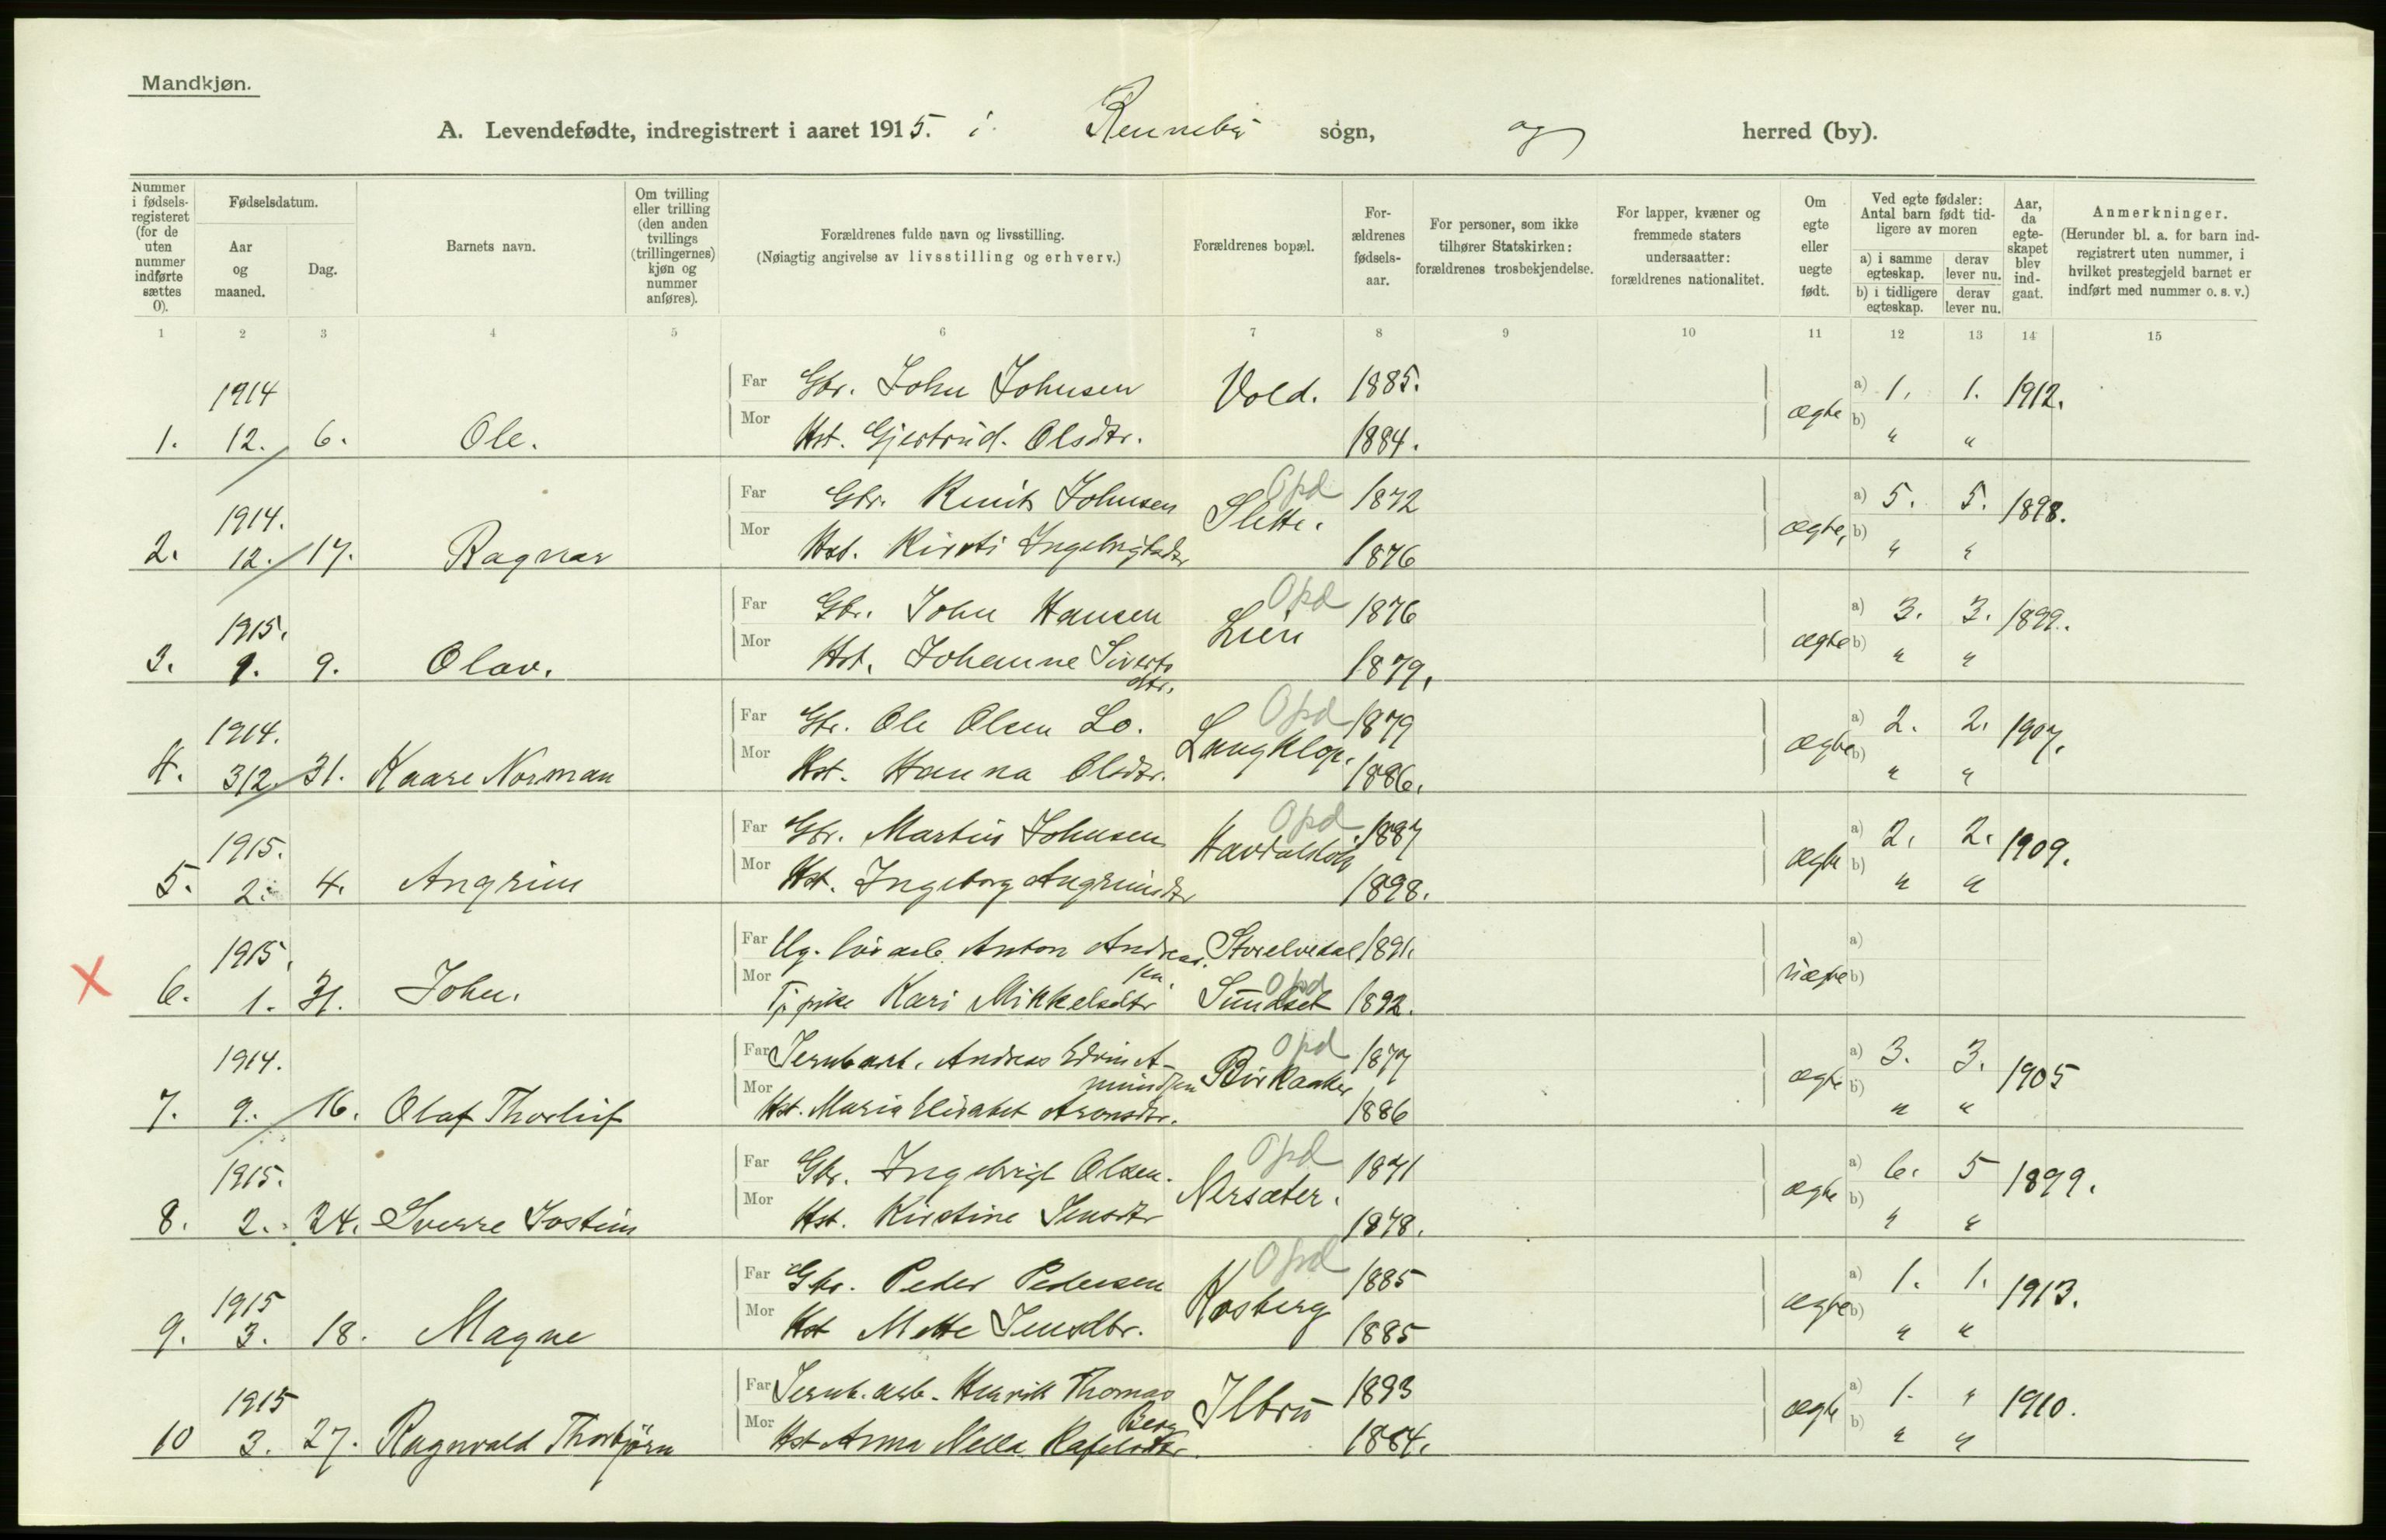 Mandkjøn.
A. Levendefødte, indregistrert i aaret 1915. i Rennebu sogn, og herred (by).
Nummer i fødsels-registeret (for de uten nummer indførte sættes 0).
Fødselsdatum.
Aar og maaned.
Dag.
Barnets navn.
Om tvilling eller trilling (den anden tvillings (trillingernes) kjøn og nummer anføres).
Forældrenes fulde navn og livsstilling.
(Nøiagtig angivelse av livsstilling og erhverv.)
Forældrenes bopæl.
For-ældrenes fødsels-aar.
For personer, som ikke tilhører Statskirken: forældrenes trosbekjendelse.
For lapper, kvæner og fremmede staters undersaatter: forældrenes nationalitet.
Om egte eller uegte født.
Ved egte fødsler: Antal barn født tid-ligere av moren
a) i samme egteskap.
derav lever nu.
b) i tidligere egteskap.
derav lever nu.
Aar, da egte-skapet blev ind-gaat.
Anmerkninger.
(Herunder bl. a. for barn ind-registrert uten nummer, i hvilket prestegjeld barnet er indført med nummer o. s. v.)
1 2 3 4 5 6 7 8 9 10 11 12 13 14 15
1914 Far Gbr. John Johnsen Vold. 1885. a) 1. 1. 1912.
1. 12. 6. Ole. Mor Hst. Gjertrud. Olsdtr. 1884. ægte b) " "
1914. Far Gbr. Knut Johnsen Slette. Opd 1872 a) 5. 5. 1898.
2. 12. 17. Ragnar Mor Hst. Kirsti Ingebrigtsdtr 1876 ægte, b) " "
1915. Far Gbr. John Hansen Lien Opd 1876 a) 3. 3. 1899.
3. 1. 9. Olav. Mor Hst. Johanne Siverts dtr. 1879. ægte b) " "
1914. Far Gbr. Ole Olsen Lo. Langklop. Opd 1879 a) 2. 2. 1907.
4. 312. 31. Kaare Norman Mor Hst. Hanna Olsdtr. 1886. ægte b) " "
1915. Far Gbr. Martin Johnsen Opd 1887 a) 2. 2. 1909.
5. 2. 4. Angrim Mor Hst. Ingeborg Angrimsdtr 1898. ægte b) " "
1915. Far Ug. Anton Andrea sen. Storelvedal 1891. a)
X 6. 1. 31. John. Mor Tj pike Kari Mikkelsdtr Sundset Opd 1892. uægte b)
1914. Far Jernb arb. Andreas Edvin A- mundsen Birkaaker Opd 1877 a) 3. 3. 1905
7. 9. 16. Olaf Thorleif Mor Hst. Maria Elisabet Aronsdtr. 1886 ægte b) " "
1915. Far Gbr. Ingebrigt Olsen. Nersæter. Opd 1871 a) 6. 5 1899.
8. 2. 24. Sverre Jostein Mor Hst. Kirstine Jensdtr 1878. ægte b) " "
1915 Far Gbr. Peder Pedersen Kosberg Opd 1885 a) 1. 1. 1913.
9. 3. 18. Magne Mor Hst Mette Jensdtr. 1885 ægte b) " "
1915 Far Jernb. arb. Henrik Thomas Berg Ilbru 1893 a) 1. " 1910.
10 3. 27. Ragnvald Thorbjørn Mor Hst Anna Nella 1884. ægte b) " "